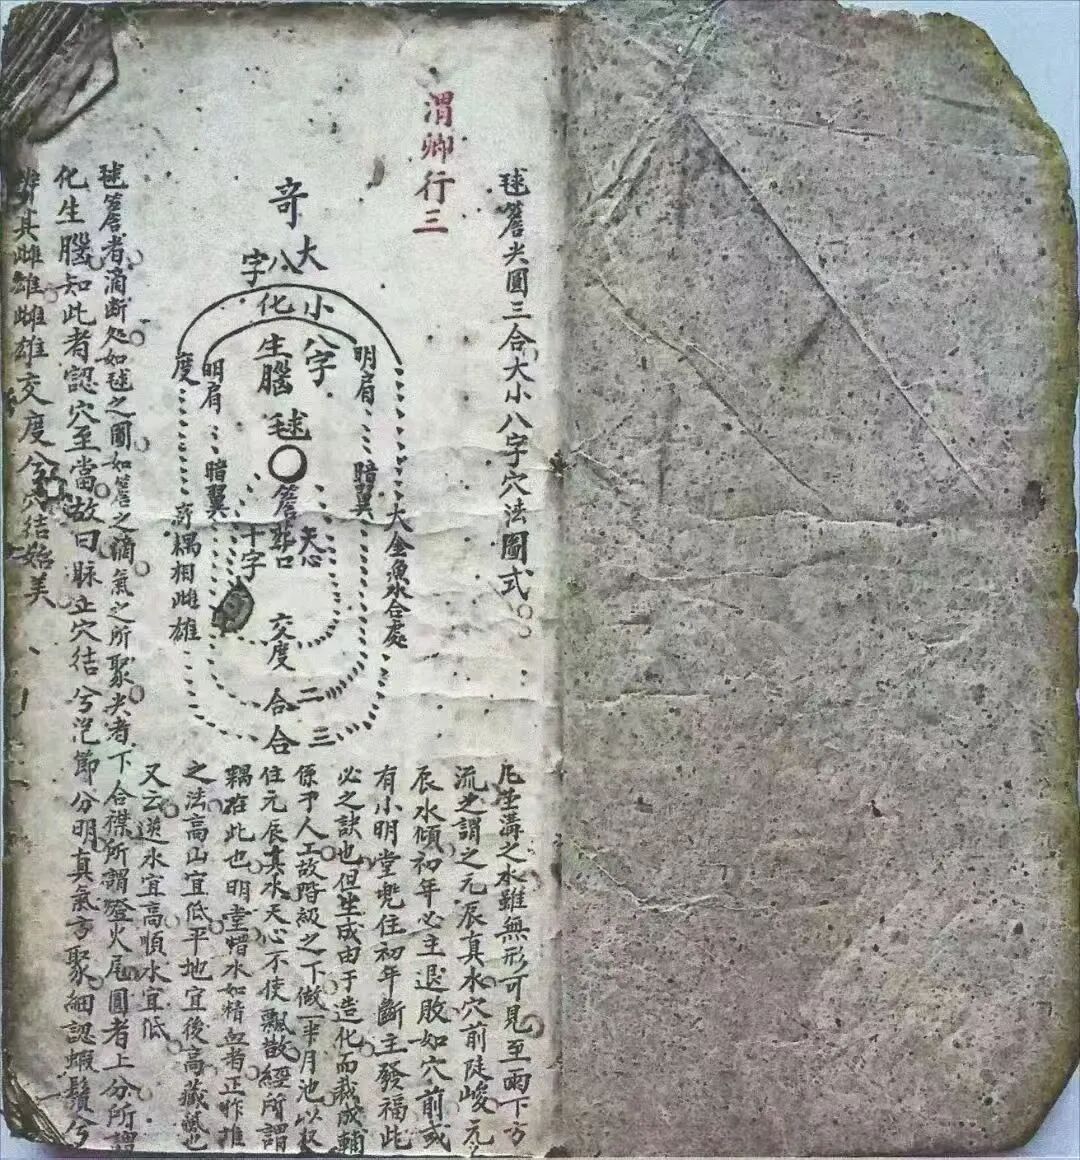 毬簷尖圓三合大小八字穴法圖式
渭卿行三
奇
大八字
小八字
化生腦
毬
簷
葬口
天心
十字
明肩
明肩
暗翼
暗翼
度
奇耦相雌雄
大金魚水合處
交度
二合
三合
之水雖無形可見至雨下方
流之謂之元辰真水穴前陡峻元
辰水傾初年必主退敗如穴前或
有小明堂兜住初年斷主發福此
必之訣也但生成由于造化而裁成輔
係乎人工故階級之下做一半月池以
住元辰真水天心不使飄散經所謂
耦在此也明堂水如精血者正
之法高山宜低平地宜後高藏
又云逆水宜高順水宜低
毬簷者滴斷処如毬之圓如簷之滴氣之所聚尖者下合襟所謂燈火尾圓者上分所謂
化生腦知此者認穴至當故曰脉立穴結兮節分明真氣方聚細認蝦鬚兮
其雌雄雌雄交度兮穴結始美